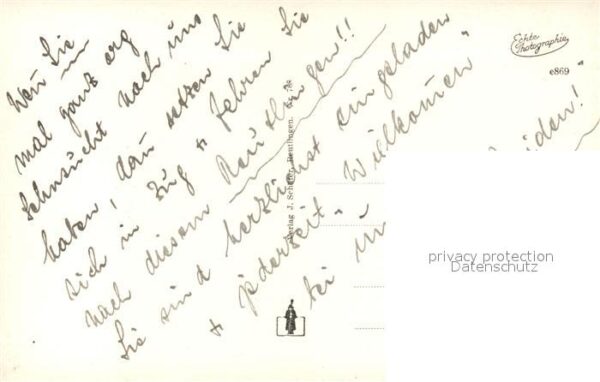 Wenn Sie
mal ganz arg
Sehnsucht nach uns
haben! dann setzen Sie Sie
sich in Zug + fahren
nach diesem Reutlingen!!
Sie sind herzlichst eingeladen
+ jederzeit "Willkommen"
bei uns beiden!
Echte
Photographie
e869
Verlag J. Schäfer, Reutlingen.
privacy protection
Datenschutz